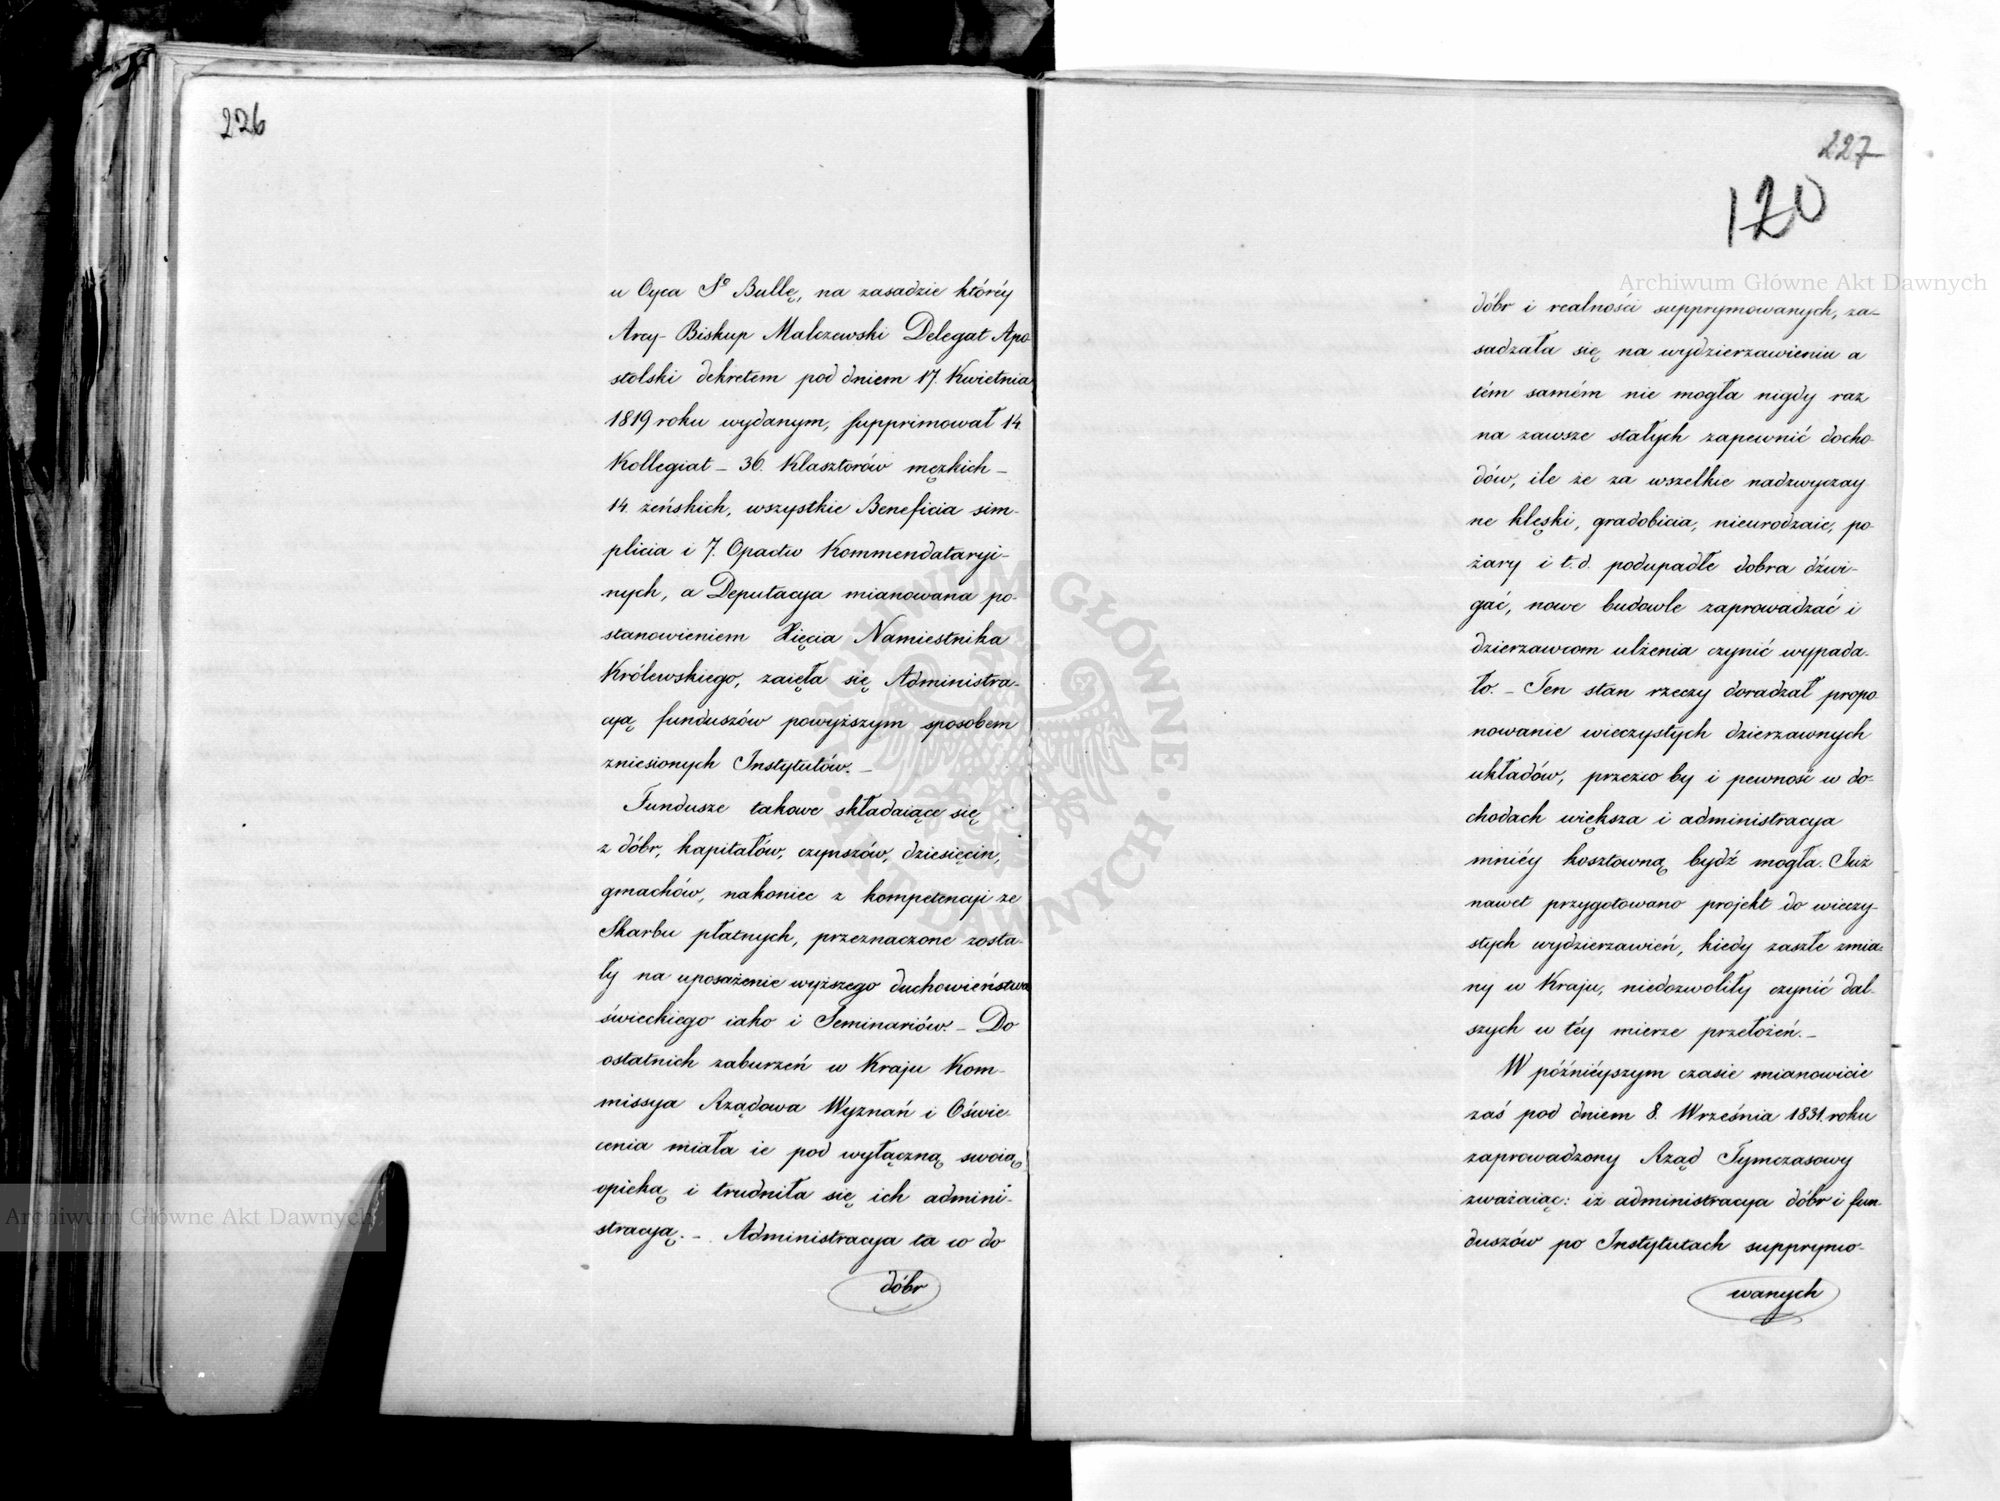 226
u Oyca Sº Bullę, na zasadzie któréy
Arcy-Biskup Malczewski Delegat Apo
stolski dekretem pod dniem 17. Kwietnia
1819 roku wydanym, supprimował 14.
Kollegiat – 36. Klasztorów męzkich –
14. żeńskich, wszystkie Beneficia sim-
plicia i 7. Opactw Kommendataryi-
nych, a Deputacya mianowana po-
stanowieniem Xięcia Namiestnika
Królewskiego, zaięła się Administra-
cyą funduszów powyższym sposobem
zniesionych Instytutów. –
Fundusze takowe składaiące się
z dóbr, kapitałów, czynszów, dziesięcin,
gmachów, nakoniec z kompetencji ze
Skarbu płatnych, przeznaczone zosta-
ły na uposażenie wyższego duchowieństwa
świeckiego iako i Seminariów. – Do
ostatnich zaburzeń w Kraju Kom-
missya Rządowa Wyznań i Oświe-
cenia miała ie pod wyłączną swoią
opieką i trudniła się ich admini-
stracyą. – Administracya ta co do
dóbr
227
120
dóbr i realności supprymowanych, za-
sadzała się na wydzierzawieniu a
tém samém nie mogła nigdy raz
na zawsze stałych zapewnić docho-
dów, ile że za wszelkie nadzwyczay
ne klęski, gradobicia, nieurodzaie, po-
żary i t.d. podupadłe dobra dźwi-
gać, nowe budowle zaprowadzać i
dzierzawcom ulżenia czynić wypada-
ło. – Ten stan rzeczy doradzał propo
nowanie wieczystych dzierzawnych
układów, przezco by i pewność w do-
chodach większa i administracya
mniéy kosztowną bydź mogła. Już
nawet przygotowano projekt do wieczy-
stych wydzierzawień, kiedy zaszłe zmia-
ny w Kraju, niedozwoliły czynić dal-
szych w téy mierze przełożeń. –
W późniéyszym czasie mianowicie
zaś pod dniem 8. Września 1831. roku
zaprowadzony Rząd Tymczasowy
zważaiąc: iż administracya dóbr i fun-
duszów po Instytutach supprymo-
wanych
Archiwum Główne Akt Dawnych
Archiwum Główne Akt Dawnych
ARCHIWUM GŁÓWNE · AKT DAWNYCH ·